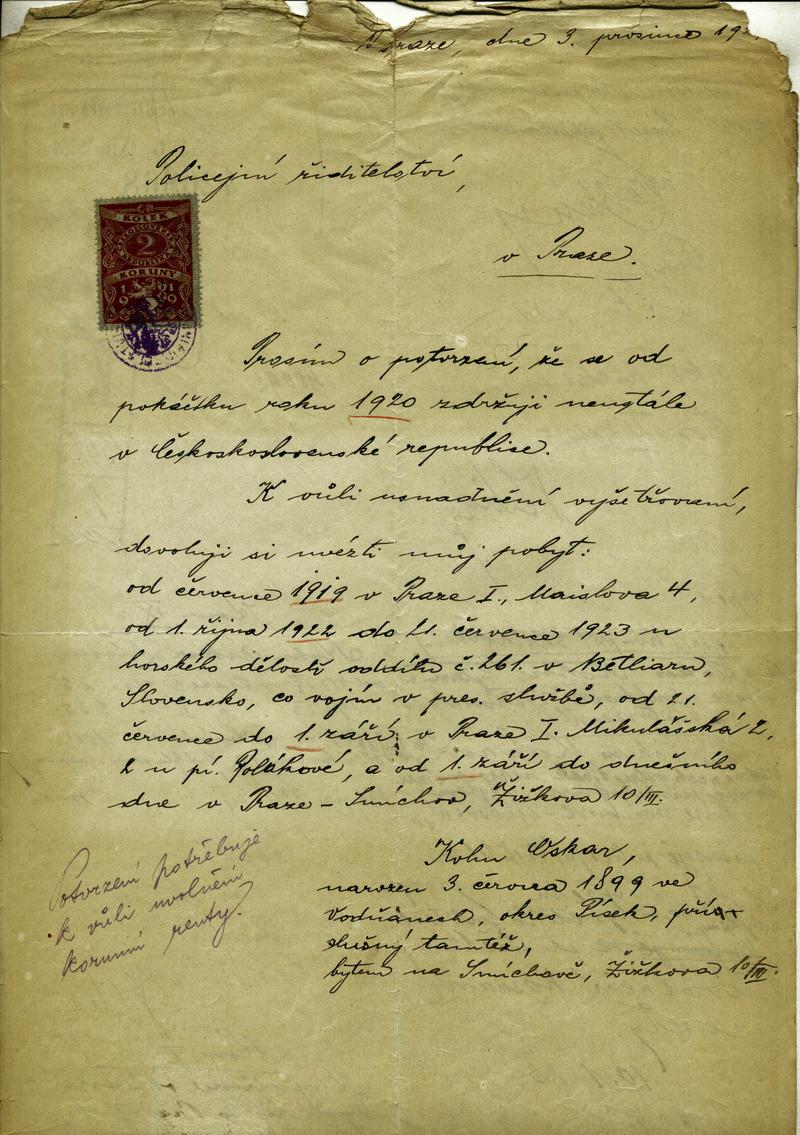 V Praze, dne 3. prosince 19
Policejní ředitelství,
v Praze.
KOLEK
2
KORUNY
1919
Prosím o potvrzení, že se od
počátku roku 1920 zdržuji neustále
v Československé republice.
K vůli usnadnění vyšetřování,
dovoluji si uvézti můj pobyt:
od července 1919 v Praze I., Maislova 4,
od 1. října 1922 do 21. července 1923 u
horského dělostř. oddílu č. 261. v Betliaru,
Slovensko, co vojín v pres. službě, od 21.
července do 1. září v Praze I. Mikulášská 2,
2 u pí. Polákové, a od 1. září do dnešního
dne v Praze - Smíchov, Žižkova 10/III.
Potvrzení potřebuje
k vůli uvolnění
korunní renty.
Kohn Oskar,
narozen 3. června 1899 ve
Vodňanech, okres Písek, přís-
slušný tamtéž,
bytem na Smíchově, Žižkova 10/III.